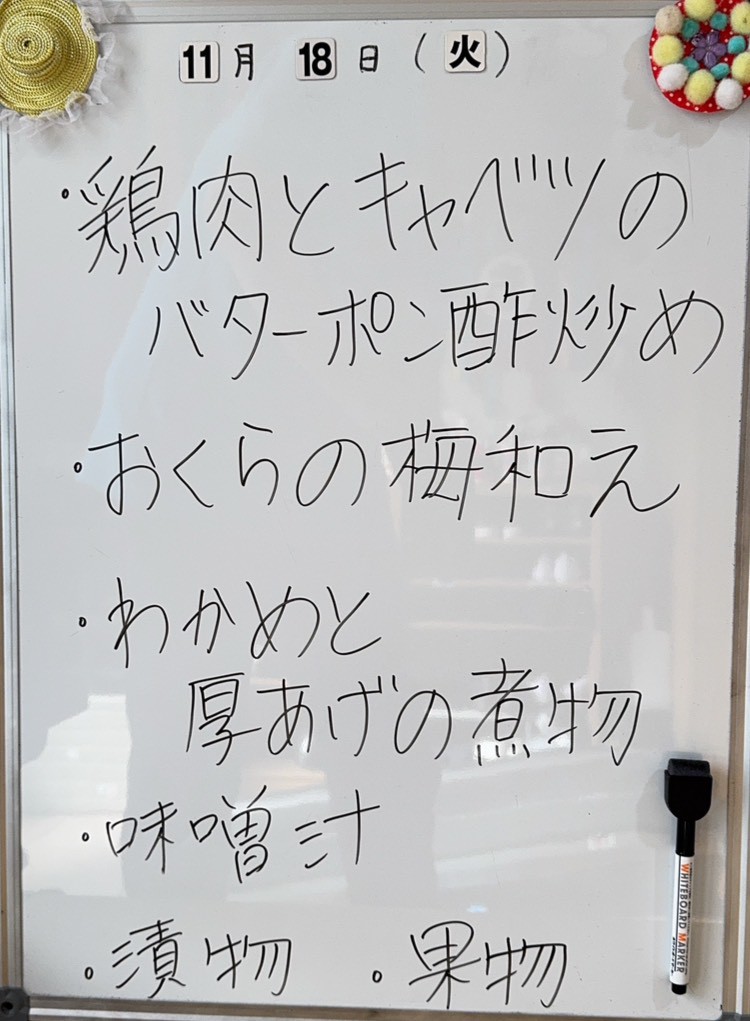 11月 18日(火)
・鶏肉とキャベツの
バターポン酢炒め
・おくらの梅和え
・わかめと
厚あげの煮物
・味噌汁
・漬物 ・果物
WHITEBOARD MARKER